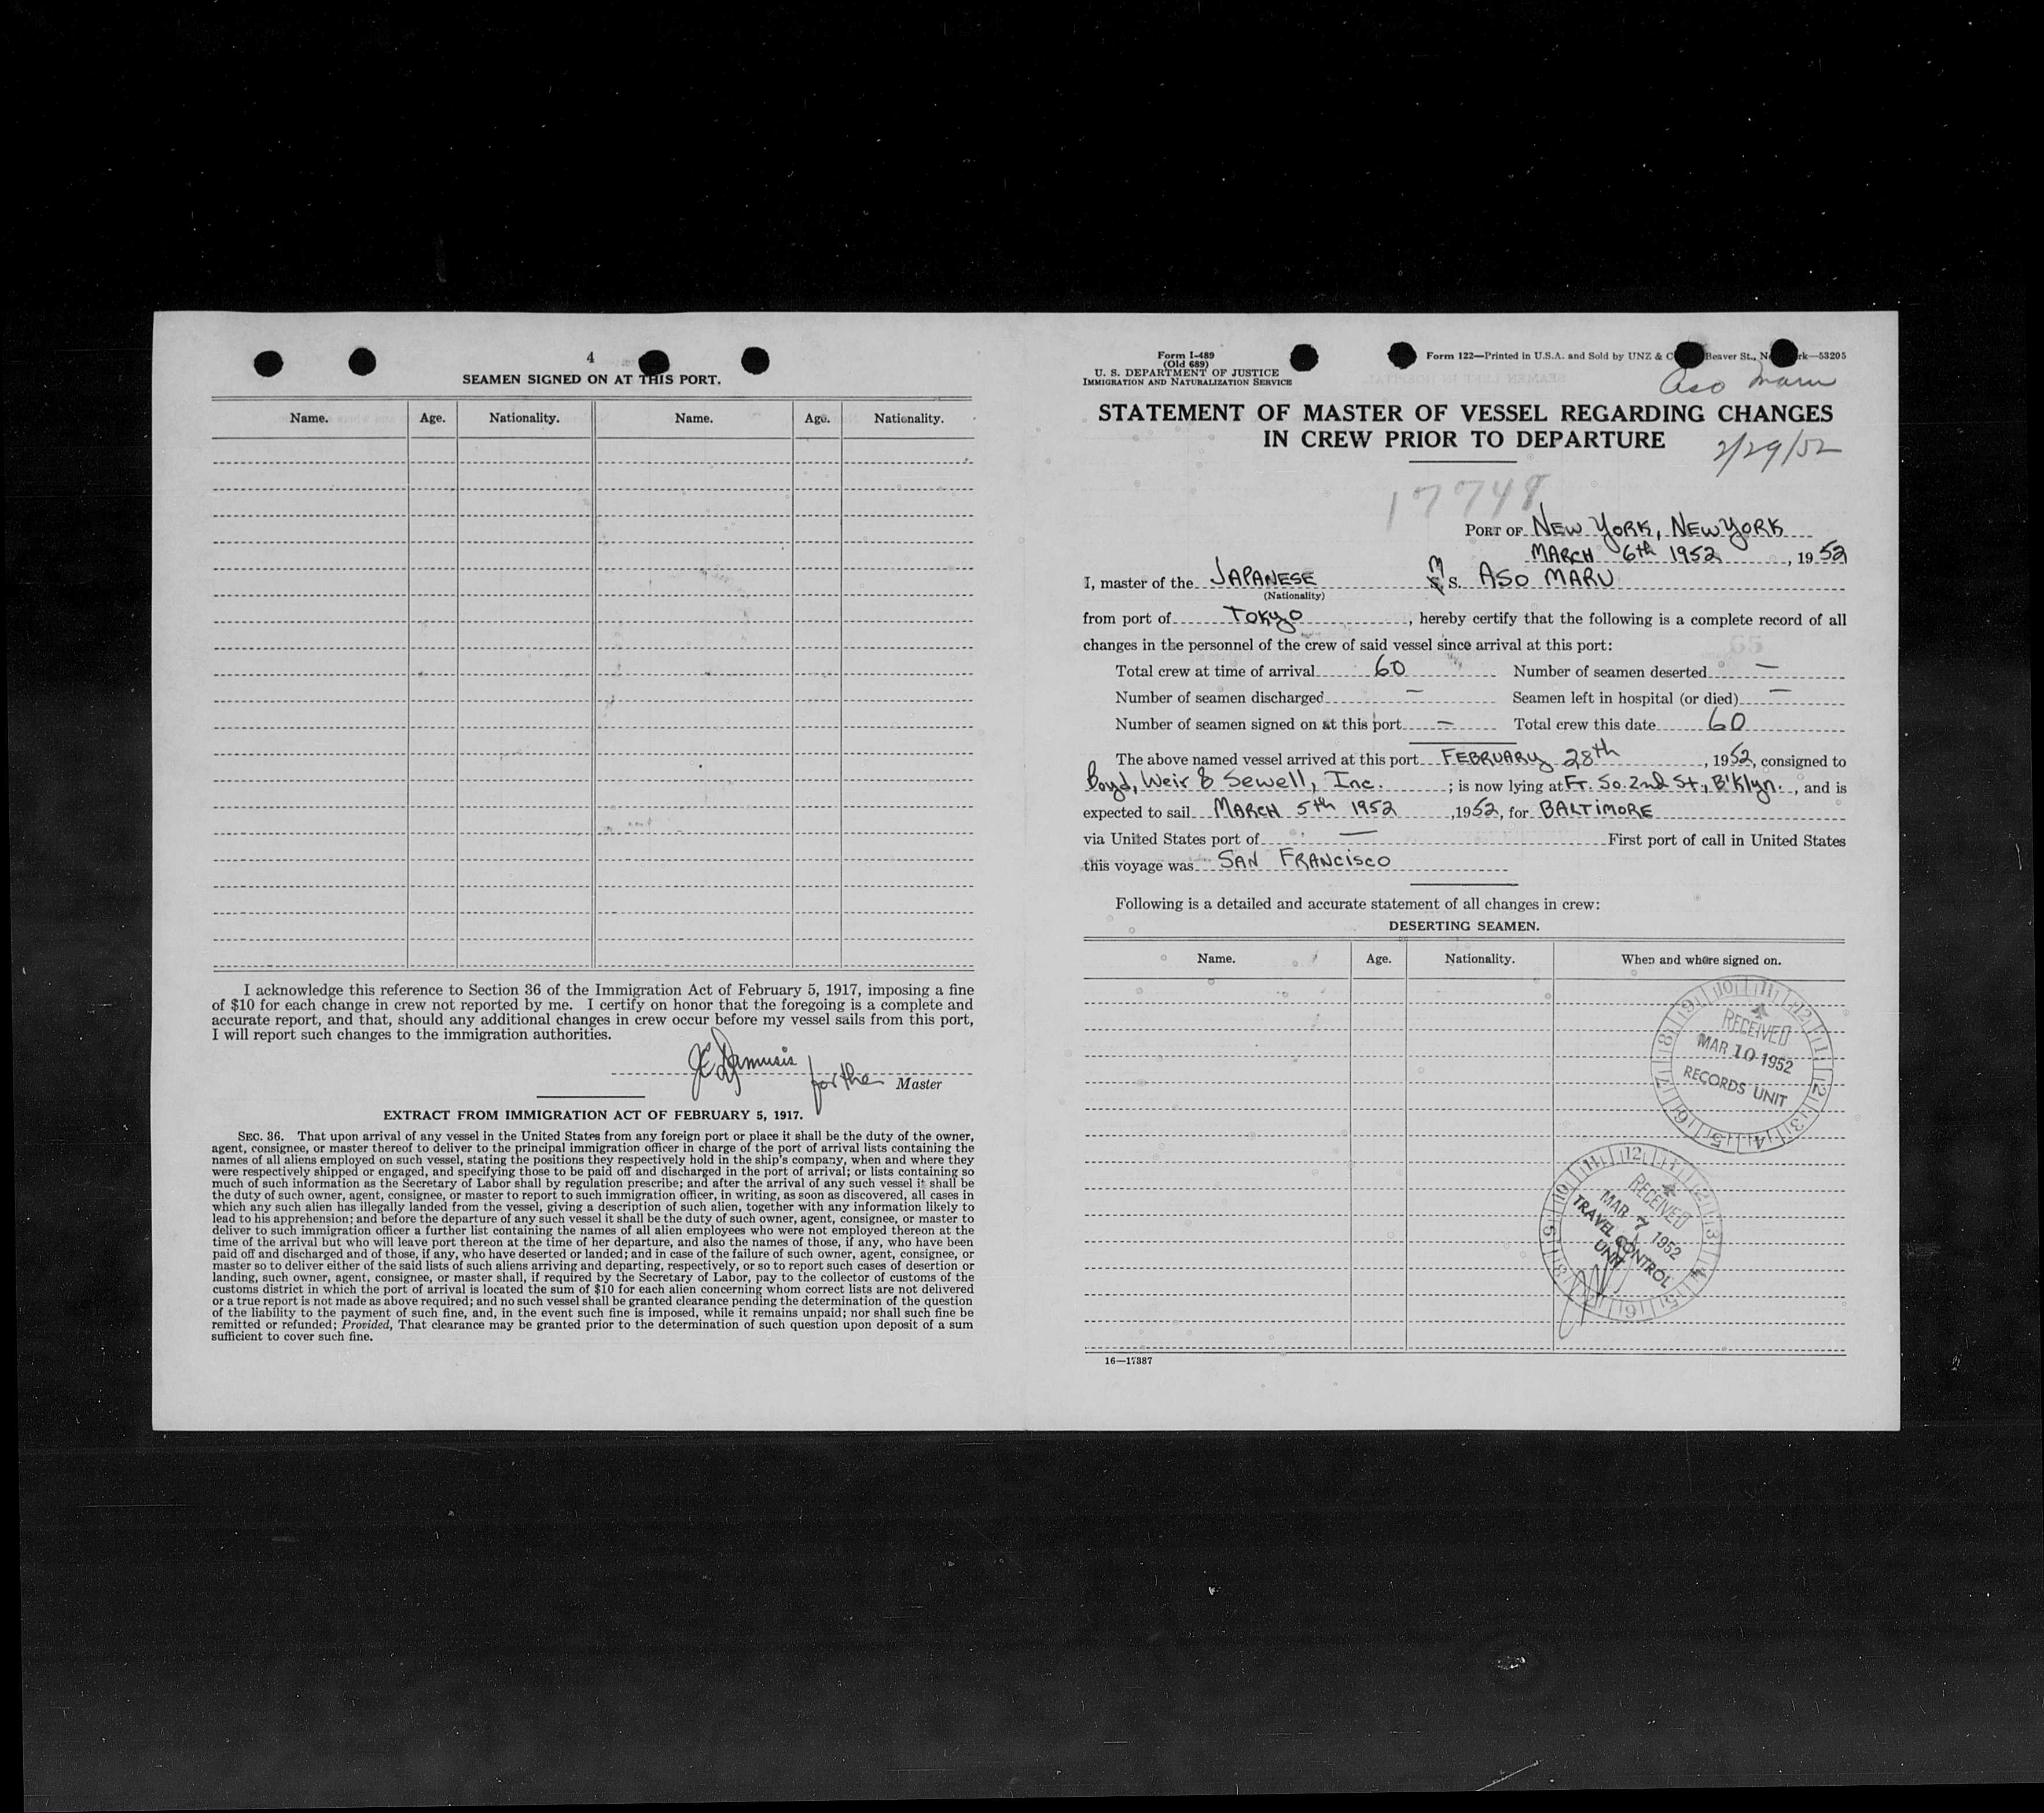 4
SEAMEN SIGNED ON AT THIS PORT.
Name. Age. Nationality. Name. Age. Nationality.
I acknowledge this reference to Section 36 of the Immigration Act of February 5, 1917, imposing a fine
of $10 for each change in crew not reported by me. I certify on honor that the foregoing is a complete and
accurate report, and that, should any additional changes in crew occur before my vessel sails from this port,
I will report such changes to the immigration authorities.
for the Master
EXTRACT FROM IMMIGRATION ACT OF FEBRUARY 5, 1917.
SEC. 36. That upon arrival of any vessel in the United States from any foreign port or place it shall be the duty of the owner,
agent, consignee, or master thereof to deliver to the principal immigration officer in charge of the port of arrival lists containing the
names of all aliens employed on such vessel, stating the positions they respectively hold in the ship's company, when and where they
were respectively shipped or engaged, and specifying those to be paid off and discharged in the port of arrival; or lists containing so
much of such information as the Secretary of Labor shall by regulation prescribe; and after the arrival of any such vessel it shall be
the duty of such owner, agent, consignee, or master to report to such immigration officer, in writing, as soon as discovered, all cases in
which any such alien has illegally landed from the vessel, giving a description of such alien, together with any information likely to
lead to his apprehension; and before the departure of any such vessel it shall be the duty of such owner, agent, consignee, or master to
deliver to such immigration officer a further list containing the names of all alien employees who were not employed thereon at the
time of the arrival but who will leave port thereon at the time of her departure, and also the names of those, if any, who have been
paid off and discharged and of those, if any, who have deserted or landed; and in case of the failure of such owner, agent, consignee, or
master so to deliver either of the said lists of such aliens arriving and departing, respectively, or so to report such cases of desertion or
landing, such owner, agent, consignee, or master shall, if required by the Secretary of Labor, pay to the collector of customs of the
customs district in which the port of arrival is located the sum of $10 for each alien concerning whom correct lists are not delivered
or a true report is not made as above required; and no such vessel shall be granted clearance pending the determination of the question
of the liability to the payment of such fine, and, in the event such fine is imposed, while it remains unpaid; nor shall such fine be
remitted or refunded; Provided, That clearance may be granted prior to the determination of such question upon deposit of a sum
sufficient to cover such fine.
Form I-489
(Old 689)
U. S. DEPARTMENT OF JUSTICE
IMMIGRATION AND NATURALIZATION SERVICE
Form 122—Printed in U.S.A. and Sold by UNZ & C Beaver St., N rk—53205
Aso Maru
STATEMENT OF MASTER OF VESSEL REGARDING CHANGES
IN CREW PRIOR TO DEPARTURE
2/29/52
17748
PORT OF NEW YORK, NEW YORK
MARCH 6th 1952, 1952
I, master of the JAPANESE M S. ASO MARU
(Nationality)
from port of TOKYO, hereby certify that the following is a complete record of all
changes in the personnel of the crew of said vessel since arrival at this port:
Total crew at time of arrival 60 Number of seamen deserted —
Number of seamen discharged — Seamen left in hospital (or died) —
Number of seamen signed on at this port — Total crew this date 60
The above named vessel arrived at this port FEBRUARY 28th, 1952, consigned to
Boyd, Weir & Sewell, Inc.; is now lying at Ft. So. 2nd St., B'klyn., and is
expected to sail MARCH 5th 1952, 1952, for BALTIMORE
via United States port of — First port of call in United States
this voyage was SAN FRANCISCO
Following is a detailed and accurate statement of all changes in crew:
DESERTING SEAMEN.
Name. Age. Nationality. When and where signed on.
RECEIVED
MAR 10 1952
RECORDS UNIT
RECEIVED
MAR 7 1952
TRAVEL CONTROL
UNIT
16—17387